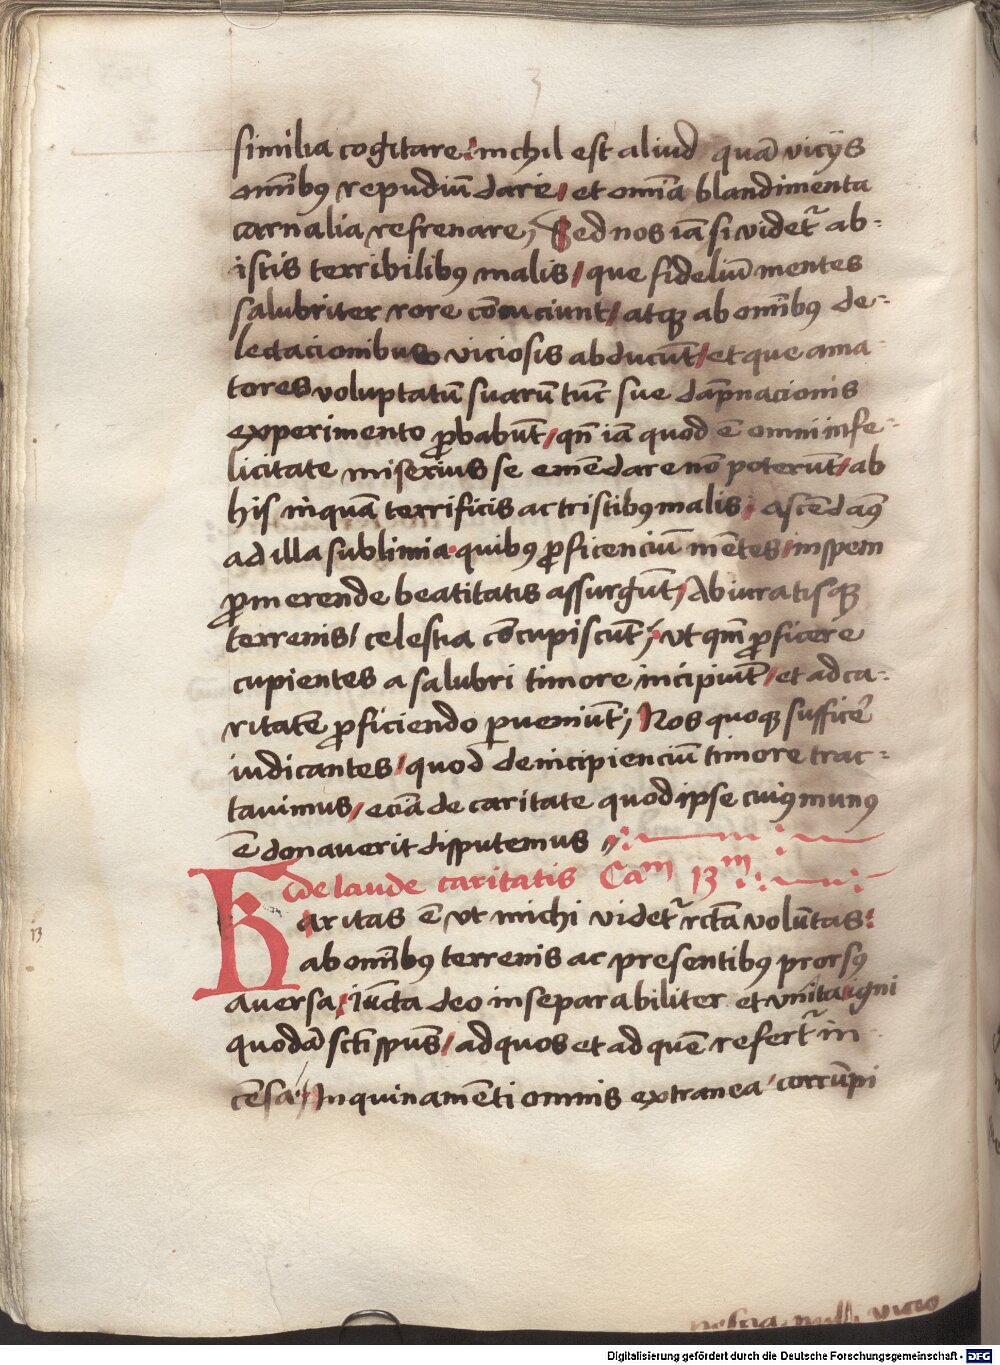 3
similia cogitare: nichil est aliud quā vicijs
om̄ibꝰ repudiū dare / et om̄ia blandimenta
carnalia refrenare, Sed nos iā si videt̄ ab-
istis terribilibꝰ malis / que fideliū mentes
salubriter rore cōuciunt / atqꝫ ab om̄ibꝰ de-
lectacionibus viciosis abducūt / et que ama-
tores voluptatū suarū tūc sue dāpnacionis
experimento ꝓbabūt / qn̄ iā quod ē omni infe-
licitate miserius se emēdare nō poterūt / ab
his inquā terrificis ac tristibꝰ malis / ascēdāꝰ
ad illa sublimia quibꝰ ꝓficienciū mētes / in spem
ꝓmerende beatitatis assurgūt / Abiuratisqꝫ
terrenis / celestia cōcupiscūt / vt qm̄ ꝓficere
cupientes a salubri timore incipiūt / et ad ca-
ritatē ꝓficiendo ꝑueniūt; Nos quoqꝫ sufficer̄
iudicantes / quod de incipienciū timore trac-
tauimus / eciā de caritate quod ipse cuiꝰ munꝰ
ē donauerit disputemus
de laude caritatis Cam 13m
Karitas ē vt michi videt̄ rcta volūtas:
13
ab om̄ibꝰ terrenis ac presentibꝰ prorsꝰ
auersa / iūcta deo inseparabiliter et vnita igni
quodā scti spūs / ad quos et ad quē refert̄ in
cēsa / Inquinamēti omnis extranea / corrūpi
nescia, nulli vicio
Digitalisierung gefördert durch die Deutsche Forschungsgemeinschaft - DFG